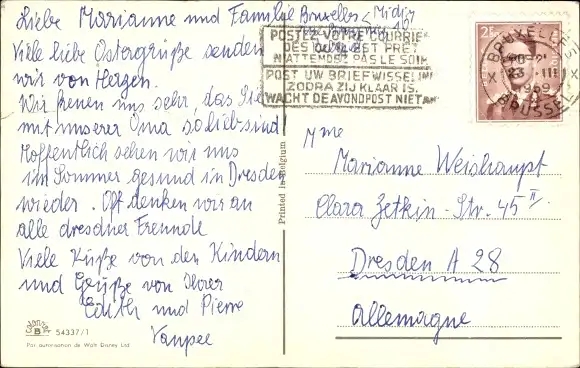 Liebe Marianne und Familie Bruxelles Midi
Viele liebe Ostergrüße senden
wir von Herzen.
Wir freuen uns sehr, das Sie
mit unserer Oma so lieb sind
Hoffentlich sehen wir uns
im Sommer gesund in Dresden
wieder. Oft denken wir an
alle dresdner Freunde
Viele Küße von den Kindern
und Grüße von Ihrer
Edith und Pierre
Vanpee
54337/1
Par autorisation de Walt Disney Ltd
Printed in Belgium
POSTEZ VOTRE COURRIER
DES QU'IL EST PRET
N'ATTENDEZ PAS LE SOIR
POST UW BRIEFWISSELING
ZODRA ZIJ KLAAR IS.
WACHT DE AVONDPOST NIET AF
2F50
BRUXELLES X
23 III
1969
BRUSSEL X
Mme
Marianne Weishaupt
Clara Zetkin-Str. 45 II
Dresden A 28
Allemagne